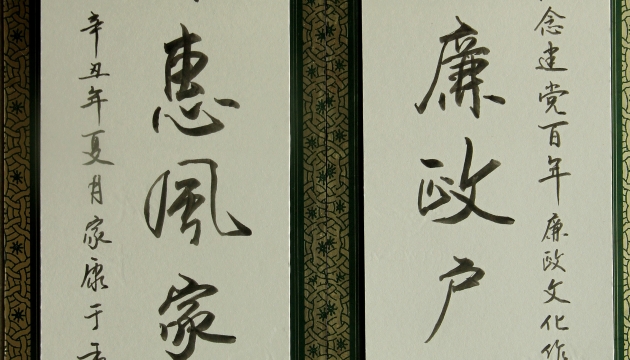 念建党百年廉政文化作
廉政户
惠风家
辛丑年夏月家康于